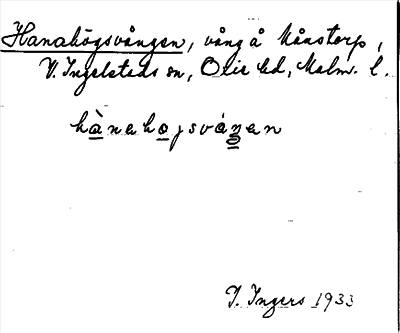 Hanahögsvången, vång å Månstorp,
V. Ingelstads sn, Oxie hd, Malm. l.
hànahojsvåŋen
I. Ingers 1933